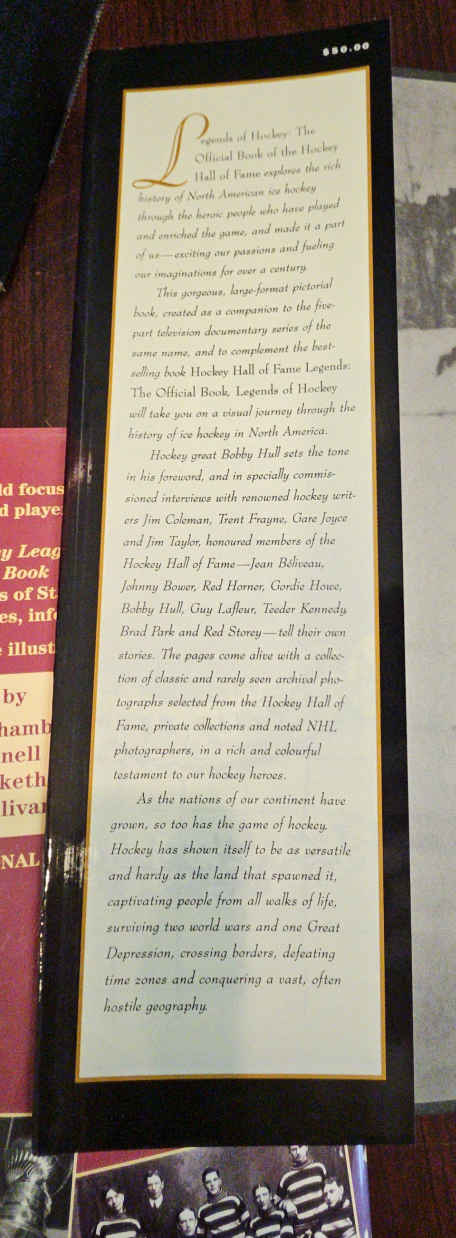 $50.00
Legends of Hockey: The
Official Book of the Hockey
Hall of Fame explores the rich
history of North American ice hockey
through the heroic people who have played
and enriched the game, and made it a part
of us—exciting our passions and fueling
our imaginations for over a century.
This gorgeous, large-format pictorial
book, created as a companion to the five-
part television documentary series of the
same name, and to complement the best-
selling book Hockey Hall of Fame Legends:
The Official Book, Legends of Hockey
will take you on a visual journey through the
history of ice hockey in North America.
Hockey great Bobby Hull sets the tone
in his foreword, and in specially commis-
sioned interviews with renowned hockey writ-
ers Jim Coleman, Trent Frayne, Gare Joyce
and Jim Taylor, honoured members of the
Hockey Hall of Fame—Jean Béliveau,
Johnny Bower, Red Horner, Gordie Howe,
Bobby Hull, Guy Lafleur, Teeder Kennedy,
Brad Park and Red Storey—tell their own
stories. The pages come alive with a collec-
tion of classic and rarely seen archival pho-
tographs selected from the Hockey Hall of
Fame, private collections and noted NHL
photographers, in a rich and colourful
testament to our hockey heroes.
As the nations of our continent have
grown, so too has the game of hockey.
Hockey has shown itself to be as versatile
and hardy as the land that spawned it,
captivating people from all walks of life,
surviving two world wars and one Great
Depression, crossing borders, defeating
time zones and conquering a vast, often
hostile geography.
ld focus
d playe
y Leag
Book
s of St
es, inf
illust
by
hamb
nell
keth
livan
NAL